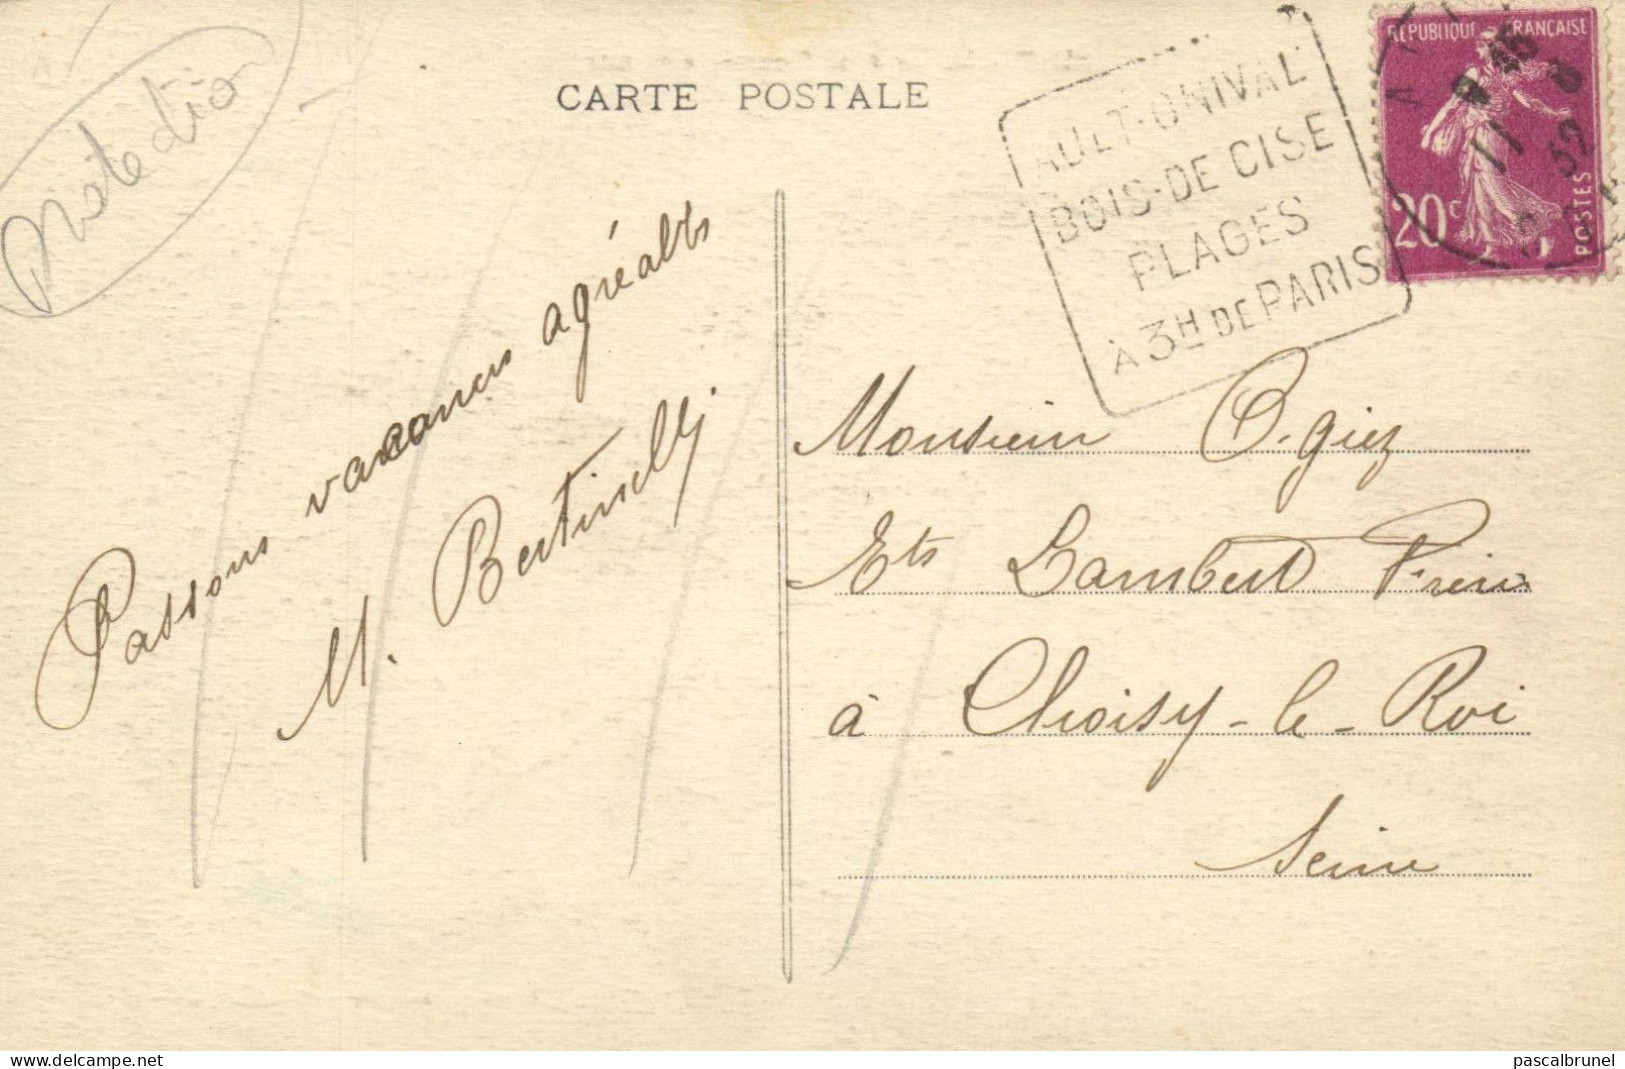 CARTE POSTALE
AULT-ONIVAL
BOIS-DE CISE
PLAGES
À 3H DE PARIS
REPUBLIQUE FRANÇAISE
20c
POSTES
11
Passons vacances agréables
M. Bertinelli
Monsieur O. giez
Ets Lambert Frères
à Choisy-le-Roi
Seine
www.delcampe.net
pascalbrunel